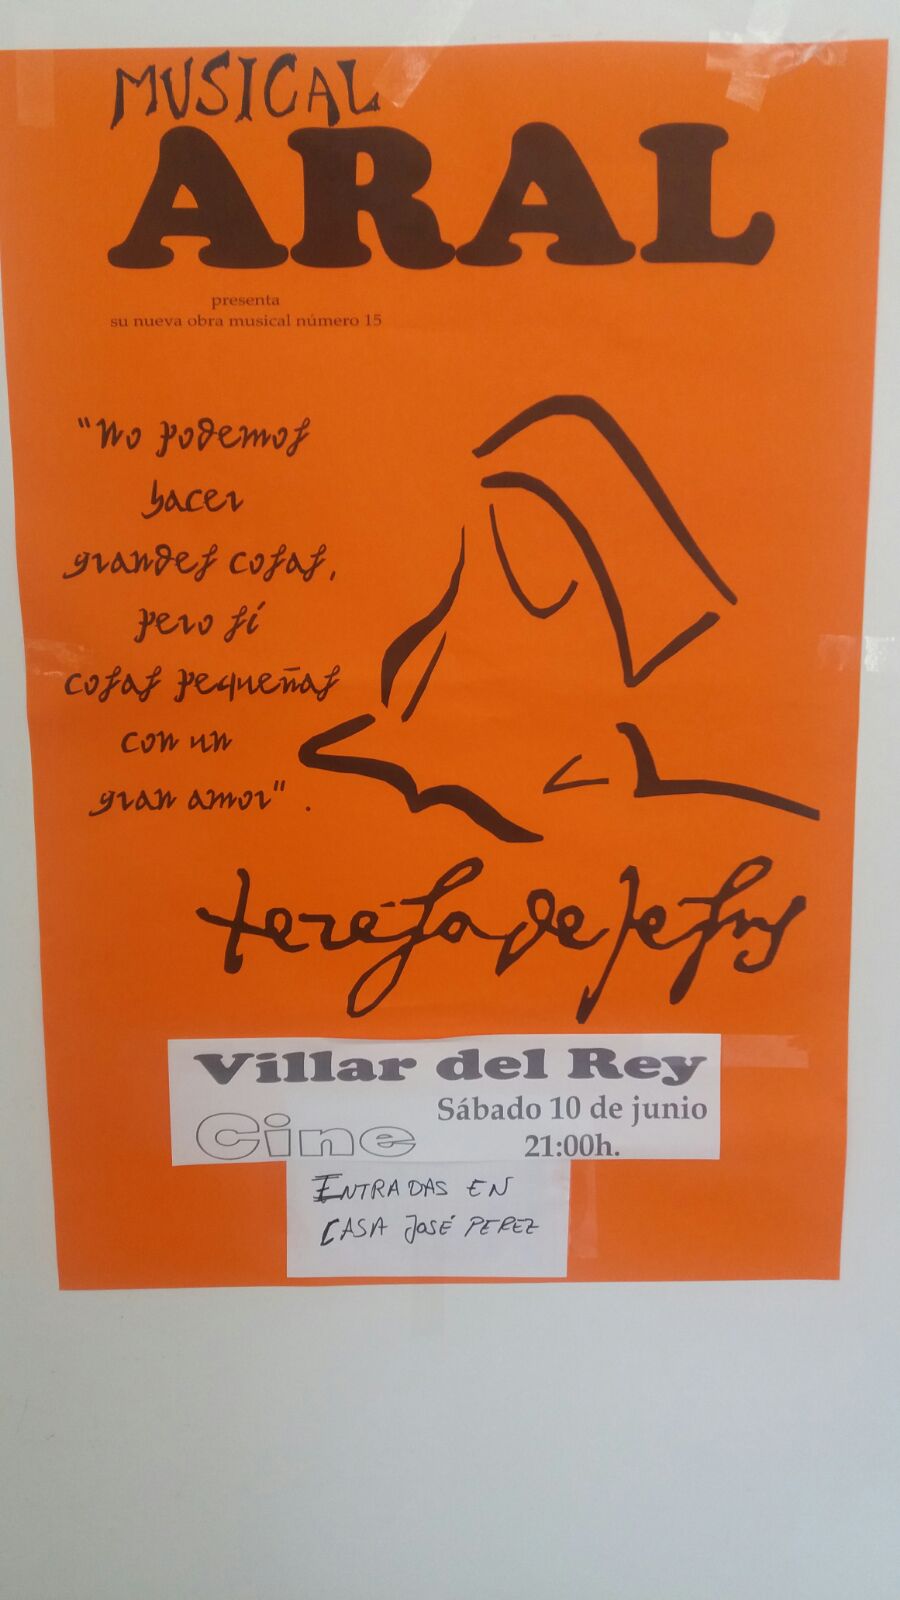 MUSICAL
ARAL
presenta
su nueva obra musical número 15
"No podemos
hacer
grandes cosas,
pero sí
cosas pequeñas
con un
gran amor".
teresa de Jesus
Villar del Rey
Cine
Sábado 10 de junio
21:00h.
ENTRADAS EN
CASA JOSÉ PEREZ